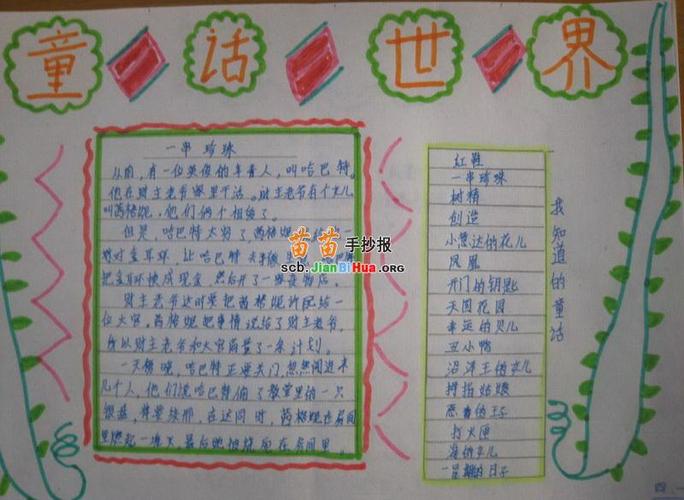 童话世界
一串珍珠
从前,有一位英俊的年青人,叫哈巴特。
他在财主老爷家里干活。财主老爷有个女儿
叫茜格妮,他们俩个相爱了。
但是,哈巴特太穷了,茜格妮
对金耳环,让哈巴特去
把金耳环换成现金,然后开了一
财主老爷这时要把茜格妮许配给一
位大官,茜格妮把事情说给了财主老爷,
所以财主老爷和大官商量了一条计划。
一天晚,哈巴特正要关门,忽然闯进来
几个人,他们说哈巴特偷了教堂里的一只
银盘,在这同时,茜格妮在房间
里燃起一堆火,最后她
苗苗手抄报
scb.JianBiHua.ORG
红鞋
一串珍珠
树精
创造
小意达的花儿
凤凰
开门的钥匙
天国花园
幸运的贝儿
丑小鸭
沼泽王的女儿
拇指姑娘
恶毒的王子
打火匣
一星期的日子
我知道的童话
四